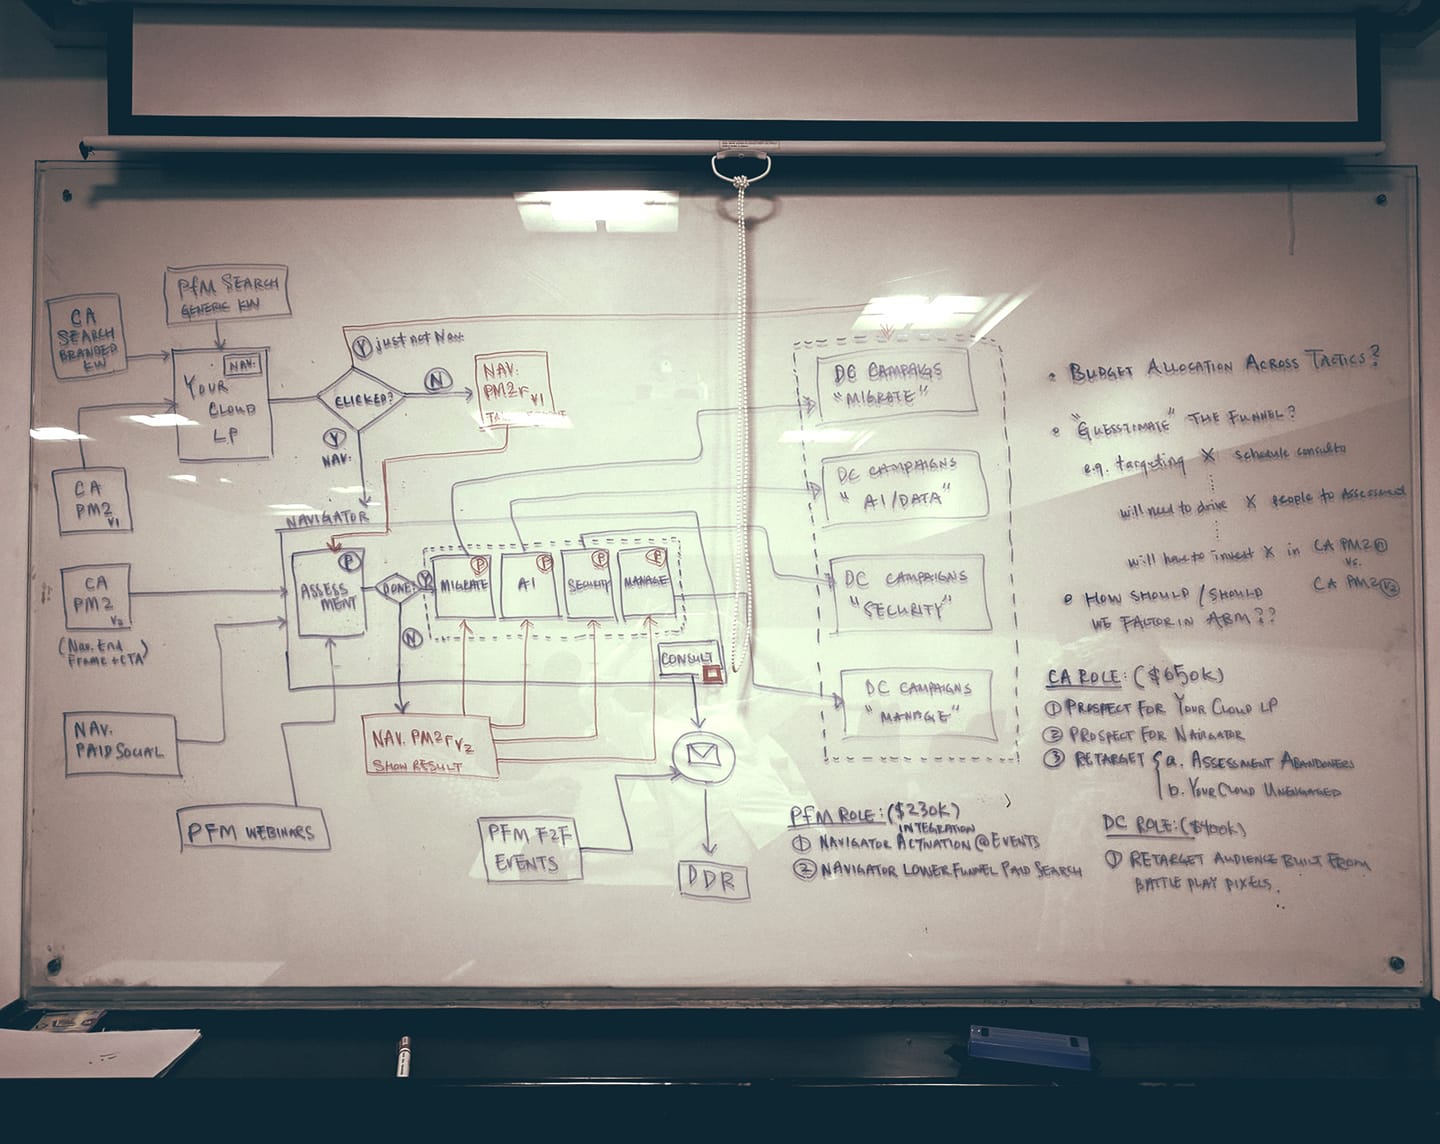 PFM SEARCH
GENERIC KW
CA
SEARCH
BRANDED
KW
NAV.
YOUR
CLOUD
LP
CA
PM2 V1
Y just not Nav.
CLICKED?
N
Y
NAV.
NAV.
PM2r V1
NAVIGATOR
CA
PM2
V2
(Nav. End
Frame + CTA)
NAV.
PAID SOCIAL
PFM WEBINARS
P
ASSESS
MENT
DONE?
Y
N
P
MIGRATE
P
AI
P
SECURITY
P
MANAGE
CONSULT
NAV. PM2r V2
SHOW RESULT
PFM F2F
EVENTS
DDR
DC CAMPAIGS
"MIGRATE"
DC CAMPAIGNS
"AI/DATA"
DC CAMPAIGNS
"SECURITY"
DC CAMPAIGNS
"MANAGE"
• BUDGET ALLOCATION ACROSS TACTICS?
• "GUESSTIMATE" THE FUNNEL?
e.g. targeting X schedule consults
will need to drive X people to Assessment
will have to invest X in CA PM2 V1
vs.
CA PM2 V2
• HOW SHOULD / SHOULD
WE FACTOR IN ABM??
CA ROLE: ($650K)
1 PROSPECT FOR YOUR CLOUD LP
2 PROSPECT FOR NAVIGATOR
3 RETARGET { a. ASSESSMENT ABANDONERS
b. YOUR CLOUD UNENGAGED
PFM ROLE: ($230K)
INTEGRATION
1 NAVIGATOR ACTIVATION @ EVENTS
2 NAVIGATOR LOWER FUNNEL PAID SEARCH
DC ROLE: ($400K)
1 RETARGET AUDIENCE BUILT FROM
BATTLE PLAY PIXELS.